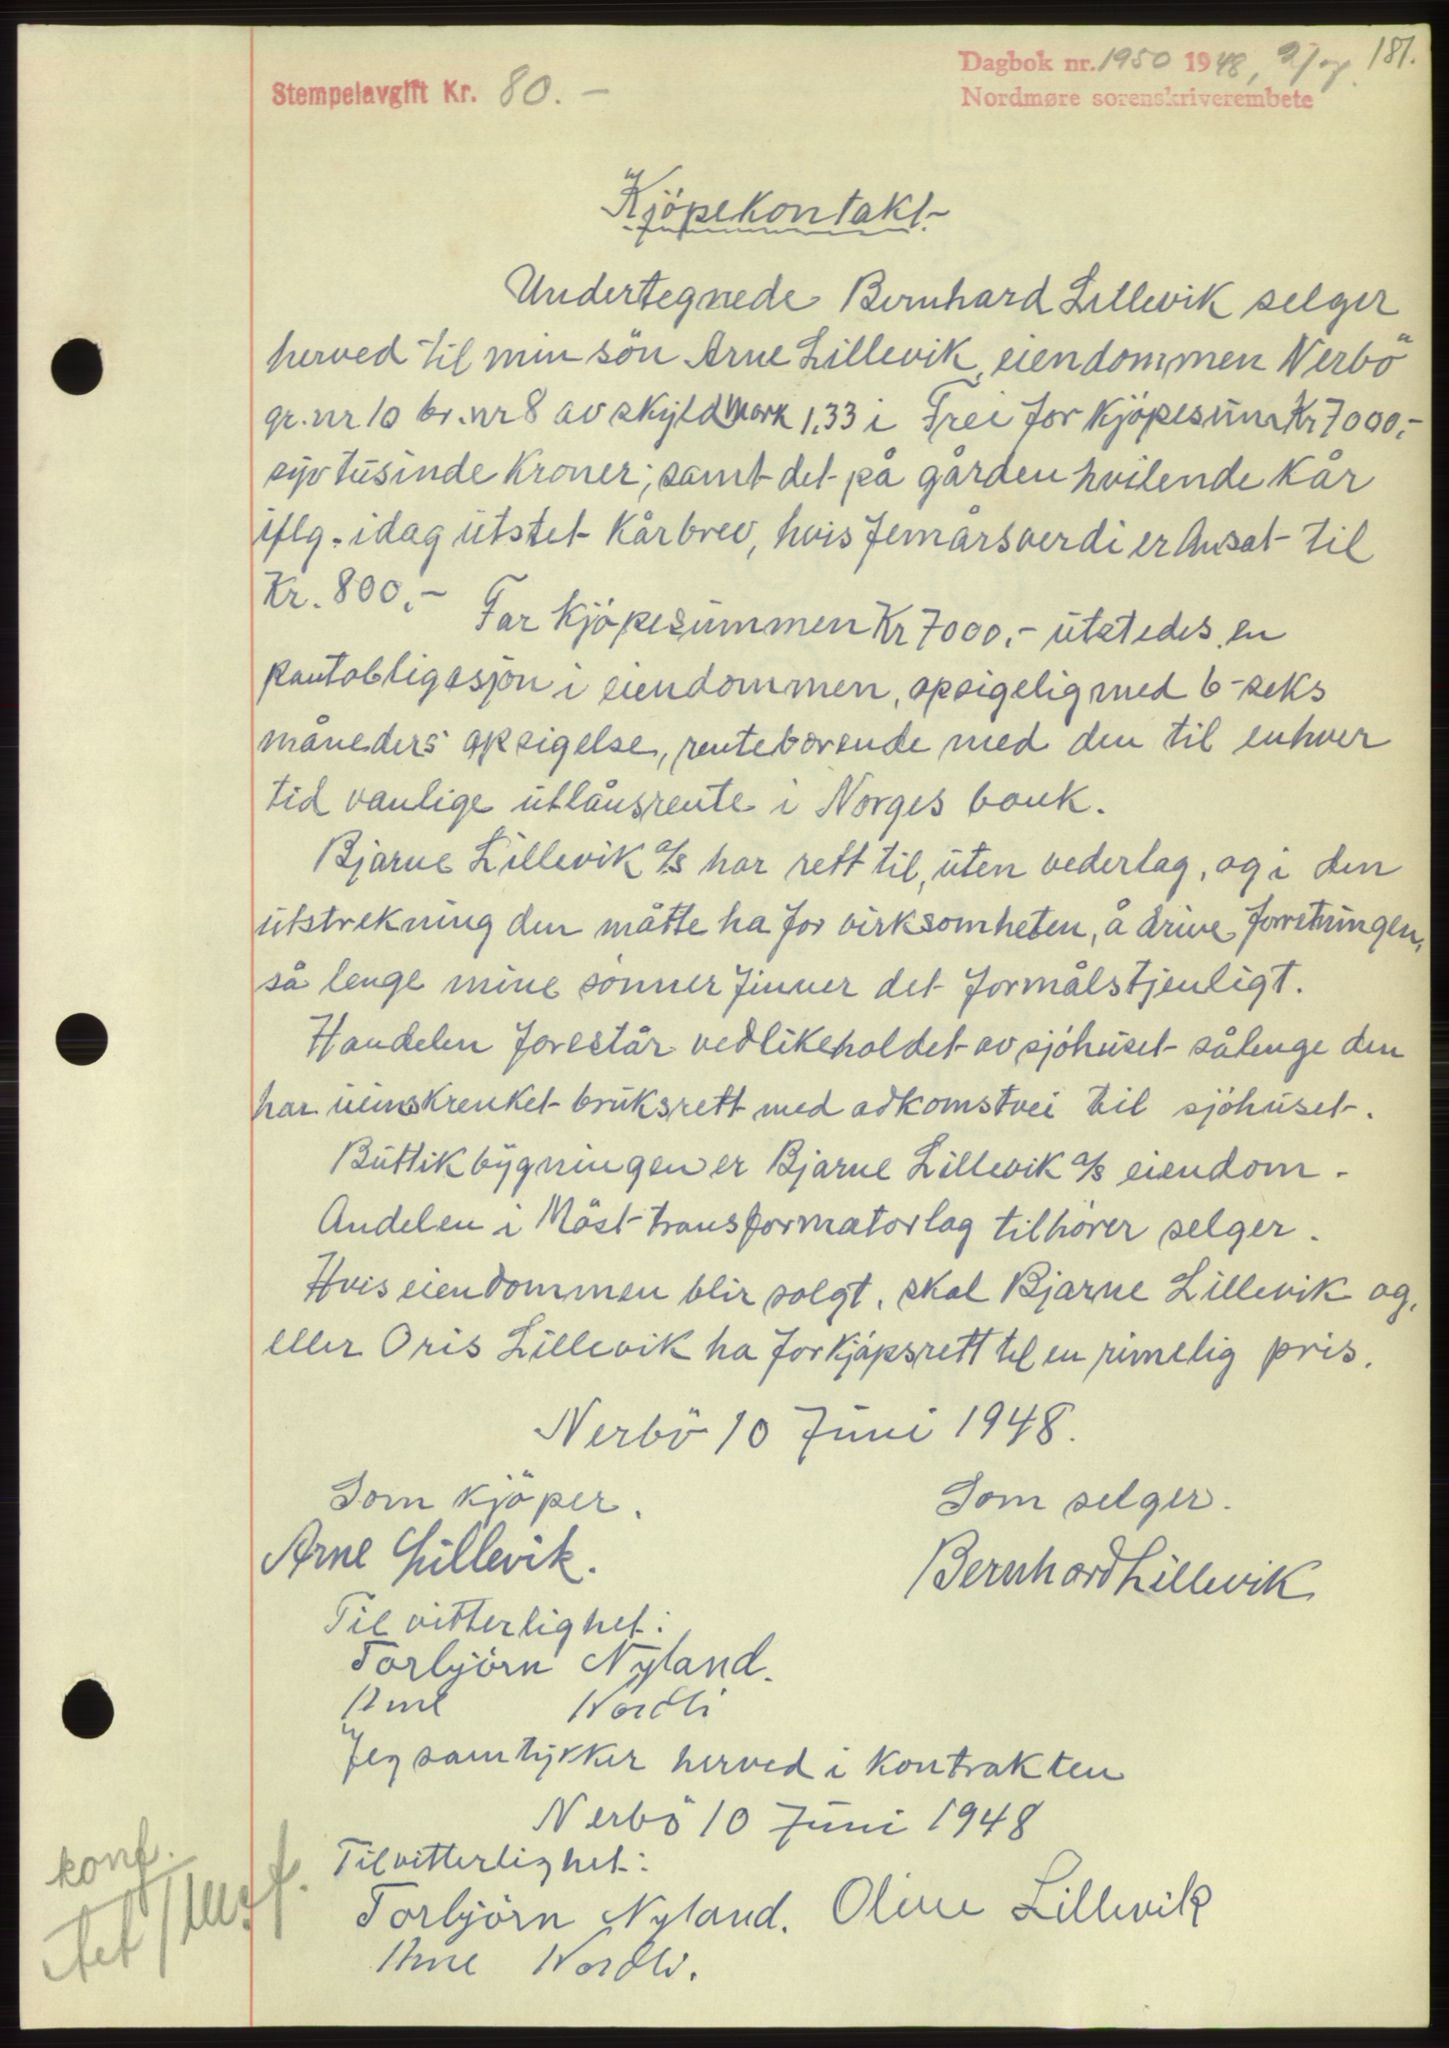 181.
Dagbok nr. 1950 1948, 2/
Stempelavgift Kr. 80.-
Nordmøre sorenskriverembete
Kjöpekontakt-
Undertegnede Bernhard Lillevik selger
herved til min sön Arne Lillevik, eiendommen Nerbö
gr. nr 10 br. nr 8 av skyld mark 1,33 i Frei for kjöpesum Kr 7000,-
syv tusinde kroner; samt det på gården hvilende kår
iflg. idag utstet kårbrev, hvis femårsverdi er ansat til
Kr. 800,-
For kjöpesummen Kr 7000,- utstedes en
pantobligasjon i eiendommen, opsigelig med 6-seks
måneders opsigelse, rentebærende med den til enhver
tid vanlige utlånsrente i Norges bank.
Bjarne Lillevik a/s har rett til, uten vederlag, og i den
utstrekning den måtte ha for virksomheten, å drive forretningen,
så lenge mine sönner finner det formålstjenligt.
Handelen forestår vedlikeholdet av sjöhuset sålenge den
har uinskrenket bruksrett med adkomstvei til sjöhuset.
Buttikbygningen er Bjarne Lillevik a/s eiendom.
Andelen i Möst transformatorlag tilhörer selger.
Hvis eiendommen blir solgt, skal Bjarne Lillevik og,
eller Oris Lillevik ha forkjöpsrett til en rimelig pris.
Nerbö 10 Juni 1948.
Som kjöper. Som selger.
Arne Lillevik. Bernhard Lillevik
Til vitterlighet:
Torbjörn Nyland.
Arne Nordli
Jeg samtykker herved i kontrakten
Nerbö 10 Juni 1948
Til vitterlighet:
Torbjörn Nyland. Oline Lillevik
Arne Nordli.
konf.